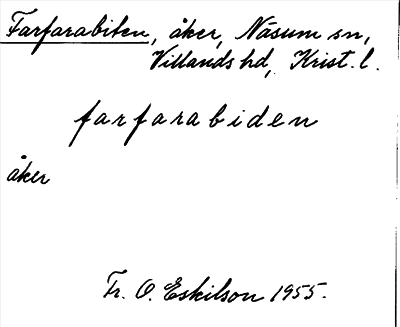 Farfarabiten, åker, Näsum sn,
Villands hd, Krist. l.
farfarabiden
åker
Fr. O. Eskilson 1955.